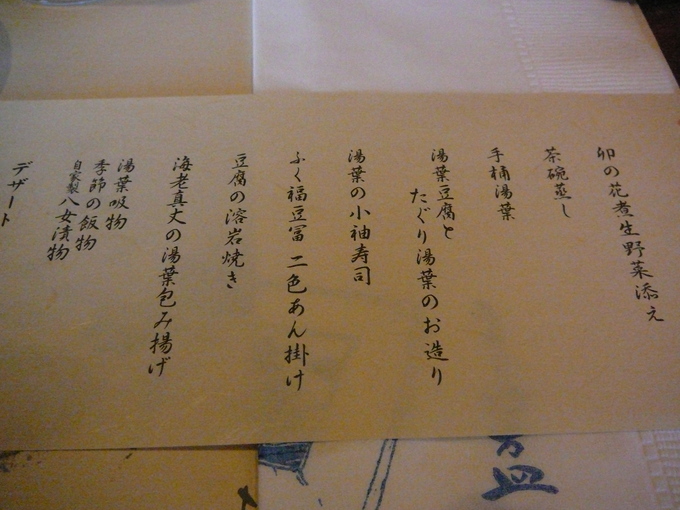 卯の花煮生野菜添え
茶碗蒸し
手桶湯葉
湯葉豆腐と
たぐり湯葉のお造り
湯葉の小袖寿司
ふく福豆冨 二色あん掛け
豆腐の溶岩焼き
海老真丈の湯葉包み揚げ
湯葉吸物
季節の飯物
自家製八女漬物
デザート